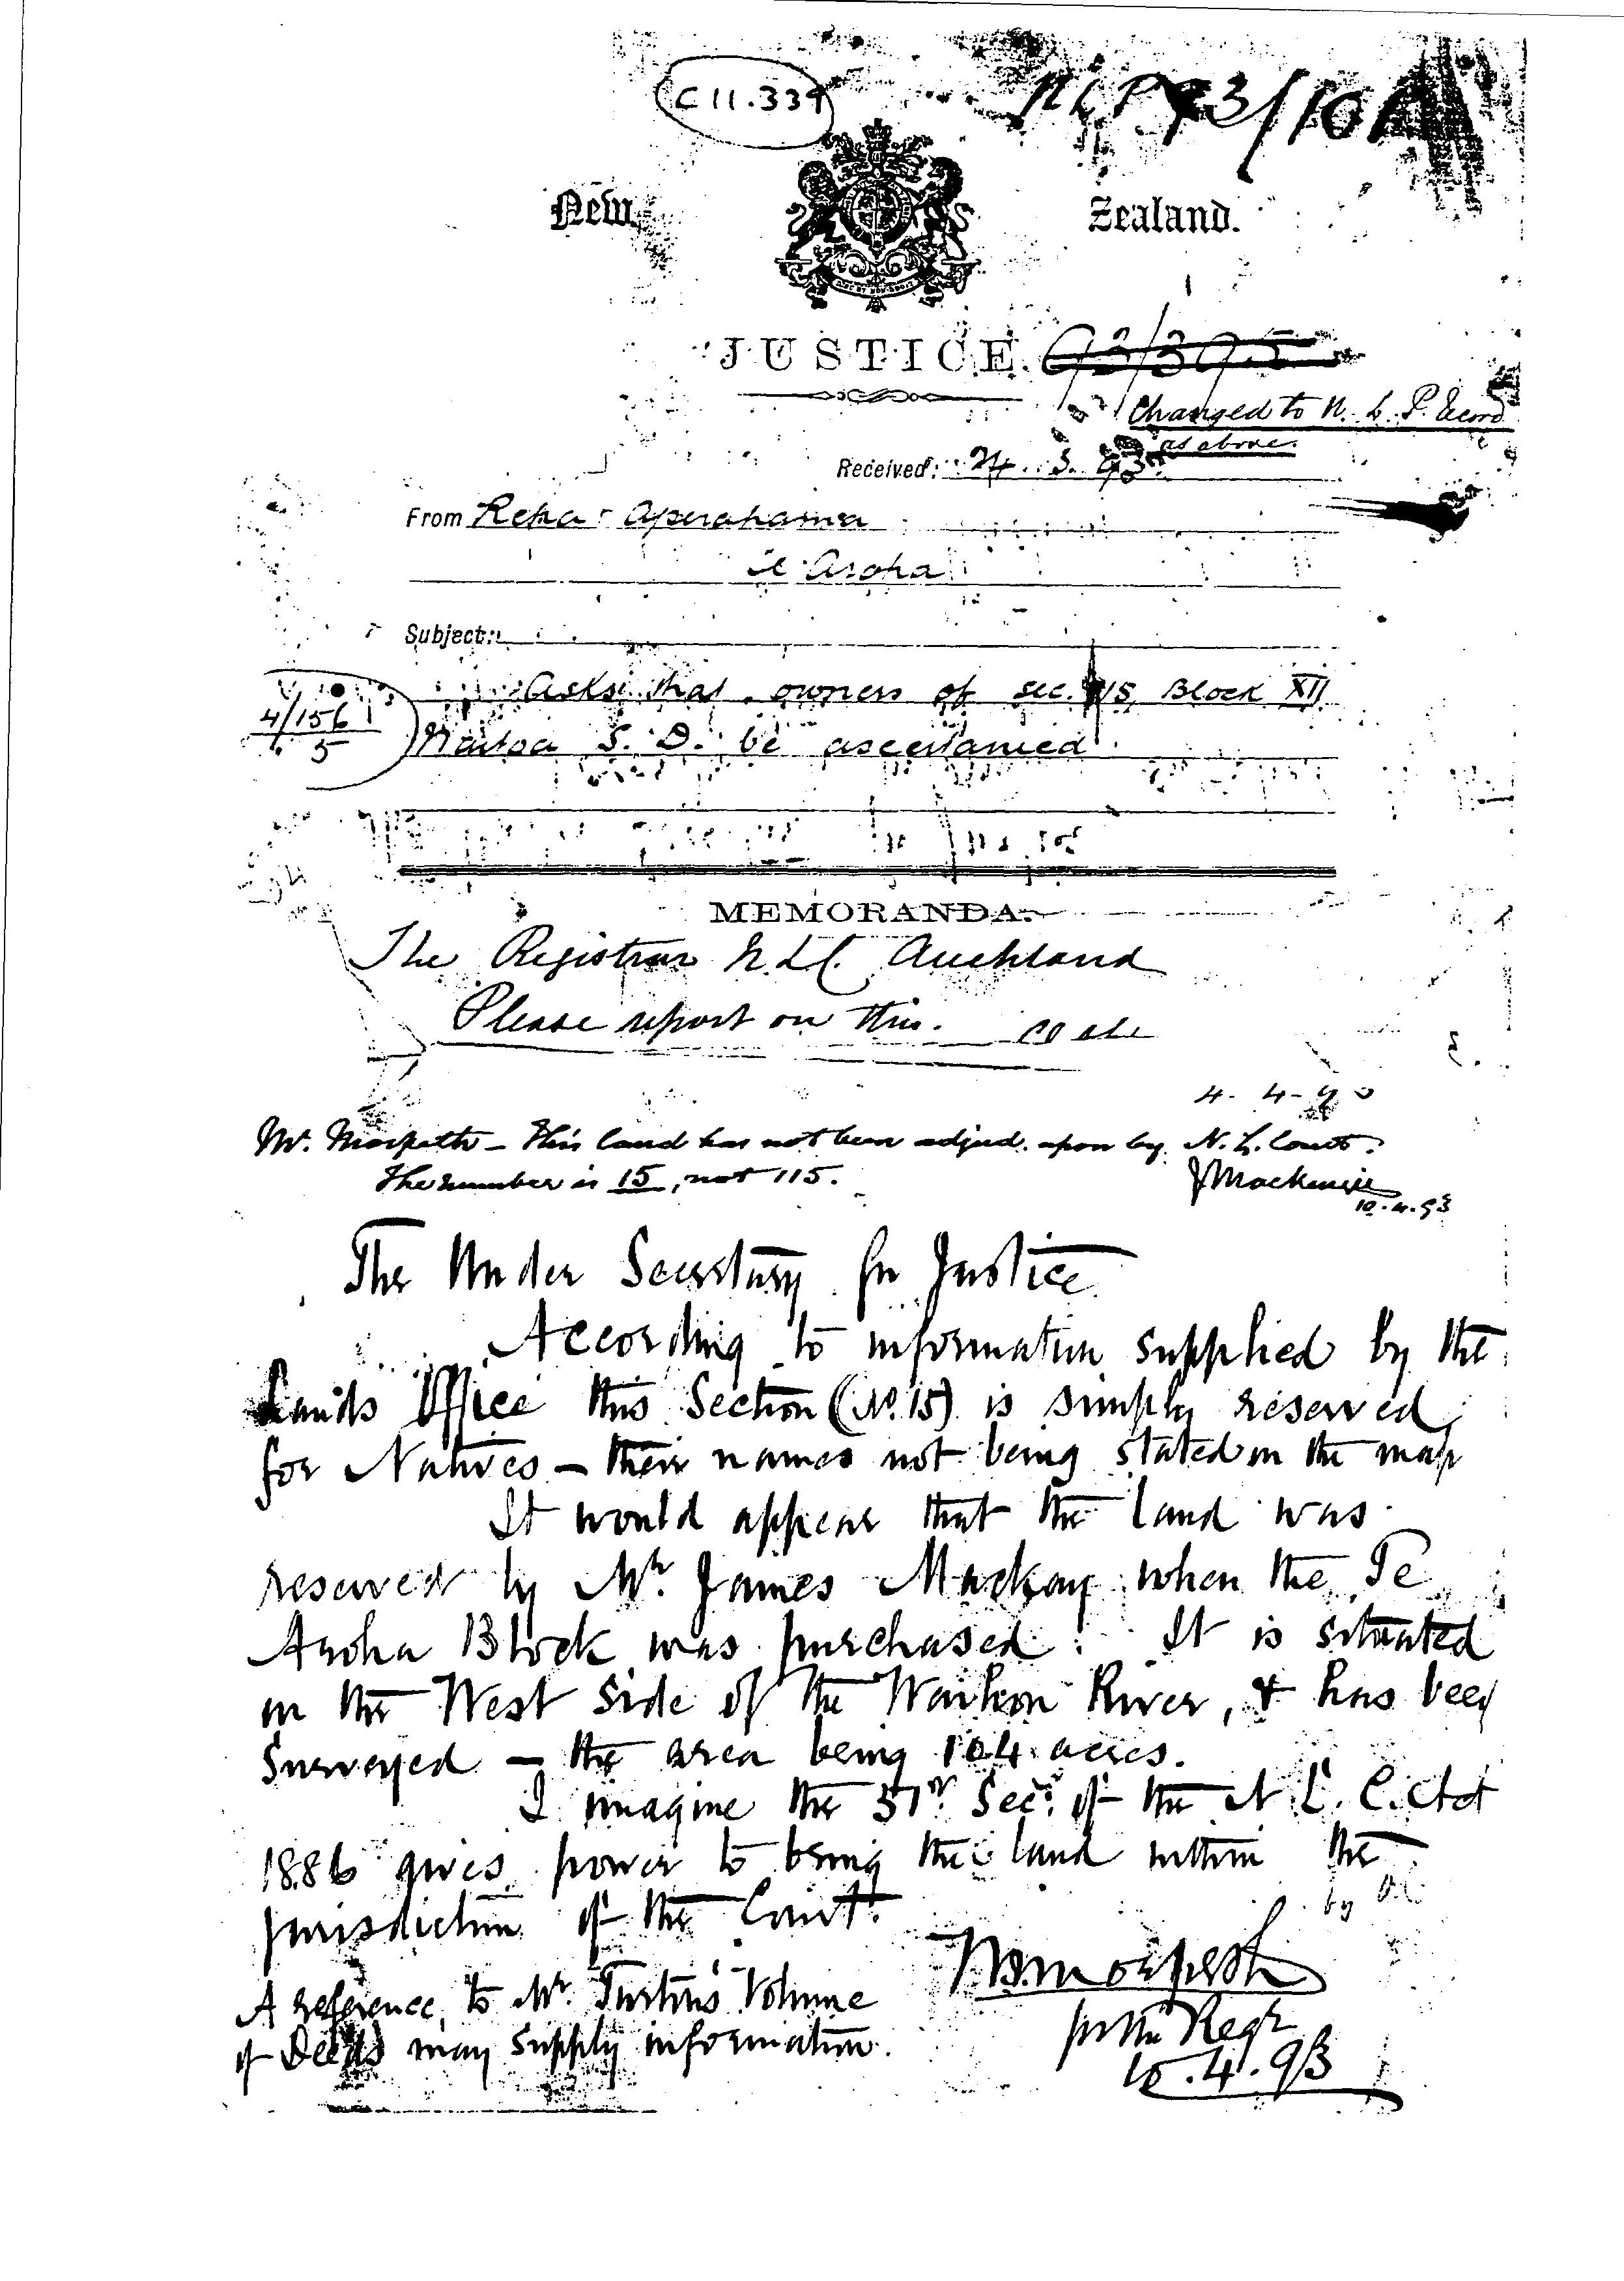 C 11.339
NLP 93/101
New Zealand.
JUSTICE. 93/395
Changed to N. L. P. Record
as above.
Received: 24. 3. 93.
From Repa Aperahama
Te Aroha
Subject:
Asks that owners of sec. 115, Block XII
Waitoa S. D. be ascertained
4/156
5
MEMORANDA.
The Registrar N.L.C. Auckland
Please report on this.
4-4-93
Mr. Morpeth – This land has not been adjud. upon by N. L. Court.
The number is 15, not 115.
J Mackenzie
10.4.93
The Under Secretary for Justice
According to information supplied by the
Lands Office this Section (No. 15) is simply reserved
for Natives – their names not being stated on the map
It would appear that the land was
reserved by Mr. James Mackay when the Te
Aroha Block was purchased. It is situated
on the West side of the Waihou River, & has been
surveyed – the area being 104 acres.
I imagine the Sec. of the N. L. C. Act
1886 gives power to bring the land within the
jurisdiction of the Court.
by
Morpeth
A reference to Mr. Turton's Volume
for the Regr
of Deeds may supply information.
10.4.93